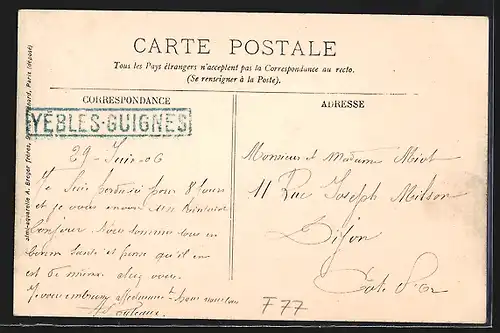 CARTE POSTALE
Tous les Pays étrangers n'acceptent pas la Correspondance au recto.
(Se renseigner à la Poste).
CORRESPONDANCE
YÈBLES-GUIGNES
29 - Juin - 06
Je suis pour 8 jours
et je vous envoie un
bonjour Nous sommes tous en
bonne santé et qu'il en
est de même chez vous
Je vous embrasse
ADRESSE
Monsieur et Madame Miot
11 Rue Joseph Milson
Dijon
Cote d'Or
F77